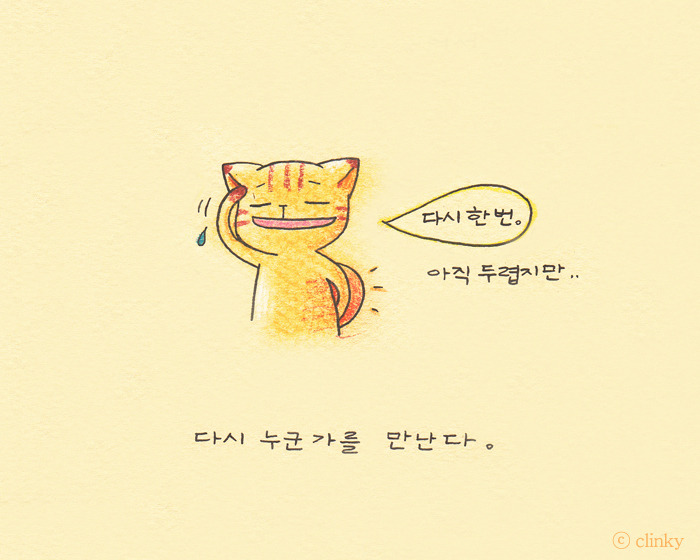 다시 한번。
아직 두렵지만..
다시 누군가를 만난다。
ⓒ clinky